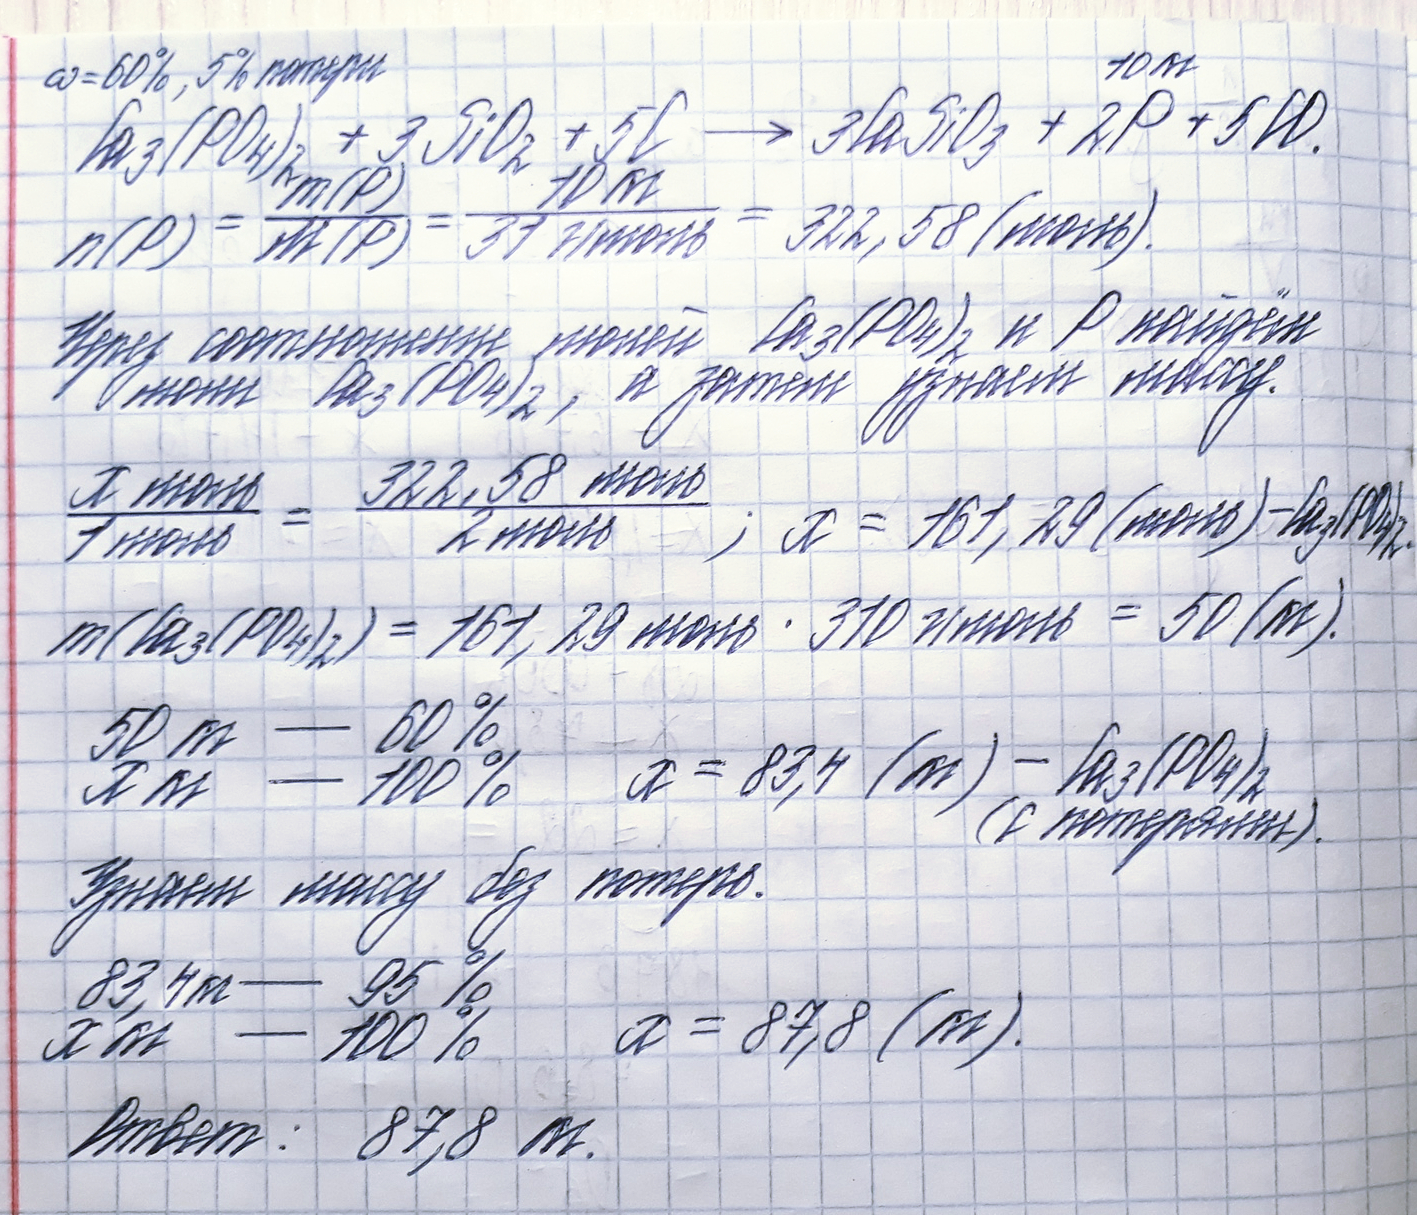 ω=60%, 5% потери
10 т
Ca₃(PO₄)₂ + 3SiO₂ + 5C → 3CaSiO₃ + 2P + 5CO.
n(P) = m(P)/M(P) = 10 т/31 г/моль = 322,58 (моль).
Через соотношение молей Ca₃(PO₄)₂ и P найдём
моли Ca₃(PO₄)₂, а затем узнаем массу.
x моль/1 моль = 322,58 моль/2 моль ; x = 161,29 (моль) – Ca₃(PO₄)₂.
m(Ca₃(PO₄)₂) = 161,29 моль · 310 г/моль = 50 (т).
50 т — 60%
x т — 100% x = 83,4 (т) – Ca₃(PO₄)₂
(с потерями).
Узнаем массу без потерь.
83,4т — 95%
x т — 100% x = 87,8 (т).
Ответ: 87,8 т.